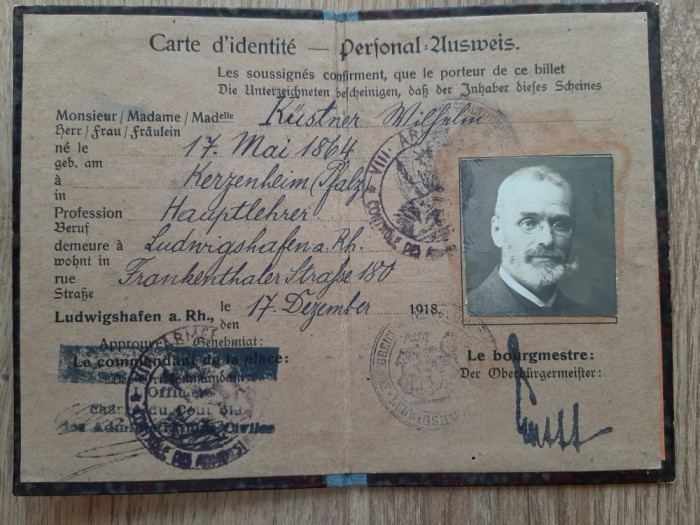 Carte d'identité — Personal-Ausweis.
Les soussignés confirment, que le porteur de ce billet
Die Unterzeichneten bescheinigen, daß der Inhaber dieses Scheines
Monsieur / Madame / Madelle Küstner Wilhelm
Herr / Frau / Fräulein
né le 17. Mai 1864
geb. am
à Kerzenheim (Pfalz)
in
Profession Hauptlehrer.
Beruf
demeure à Ludwigshafen a. Rh.
wohnt in
rue Frankenthaler Straße 180
Straße
Ludwigshafen a. Rh., le 17. Dezember 1918.
den
Approuvé Genehmigt:
Le commandant de la place:
Le bourgmestre:
Der Oberbürgermeister:
Officier
chargé du Contrôle
des Administrations Civiles
VIII. ARMÉE
CONTRÔLE DES
ARMÉE
CONTRÔLE DES ADMINIST